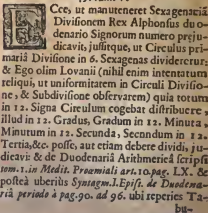 ECce, ut manuteneret Sexagenariã
Divisionem Rex Alphonsus du o-
denario Signorum numero preju-
dicavit, jussitque, ut Circulus pri-
mariâ Divisione in 6. Sexagenas divideretur:
& Ego olim Lovanii (nihil enim intentatum
reliqui, ut uniformitatem in Circuli Divisio-
ne, & Subdivisione observarem) quia totum
in 12. Signa Circulum cogebar distribuere,
illud in 12. Gradus, Gradum in 12. Minuta,
Minutum in 12. Secunda, Secundum in 12.
Tertia, &c. posse, aut etiam debere dividi, ju-
dicavi: & de Duodenariâ Arithmeticâ scripsi
tom. 1. in Medit. Proœmiali art. 10. pag. LX. &
posteà uberiùs Syntagm. I. Epist. de Duodena-
riâ periodo à pag. 90. ad 96. ubi reperies Ta-
bu-